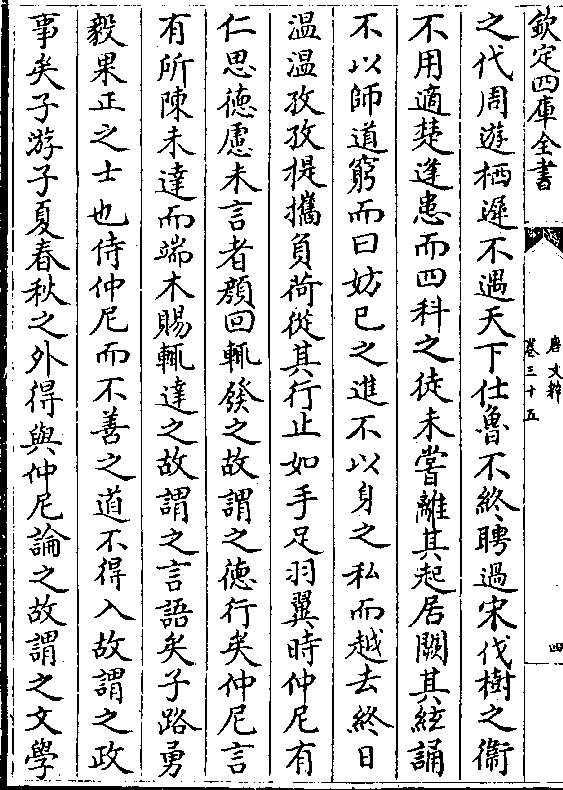 欽定四庫全書
唐文粹
卷三十五
四
之代周遊栖遲不遇天下仕魯不終聘過宋伐樹之衞
不用適楚逢患而四科之徒未嘗離其起居闕其絃誦
不以師道窮而曰妨已之進不以身之私而越去終日
温温孜孜提攜負荷從其行止如手足羽翼時仲尼有
仁思德慮未言者顔回輒發之故謂之德行矣仲尼言
有所陳未達而端木賜輒達之故謂之言語矣子路勇
毅果正之士也侍仲尼而不善之道不得入故謂之政
事矣子游子夏春秋之外得與仲尼論之故謂之文學